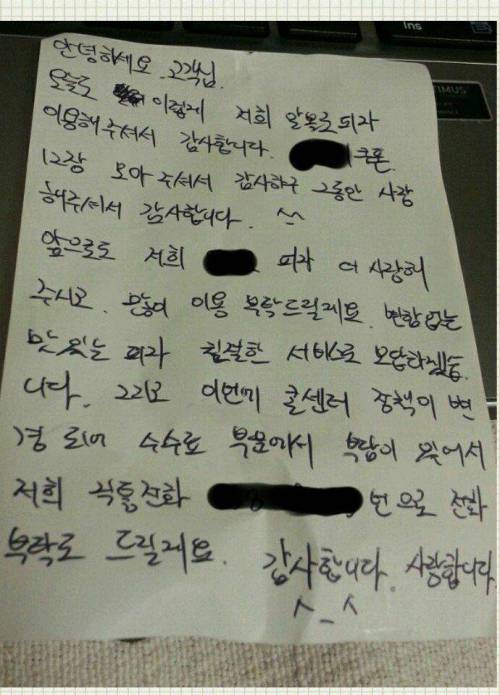 Ins
안녕하세요. 고객님.
오늘도 이렇게 저희 알볼로피자
이용해주셔서 감사합니다. 쿠폰
12장 모아주셔서 감사하구 그동안 사랑
해주셔서 감사합니다. ^^
앞으로도 저희 피자 더 사랑해
주시고. 많이 이용 부탁드릴게요. 변함없는
맛있는 피자 친절한 서비스로 보답하겠습
니다. 그리고 이번에 콜센터 정책이 변
경 되어 수수료 부분에서 부담이 있어서
저희 직통전화 번으로 전화
부탁도 드릴게요. 감사합니다. 사랑합니다.
^_^